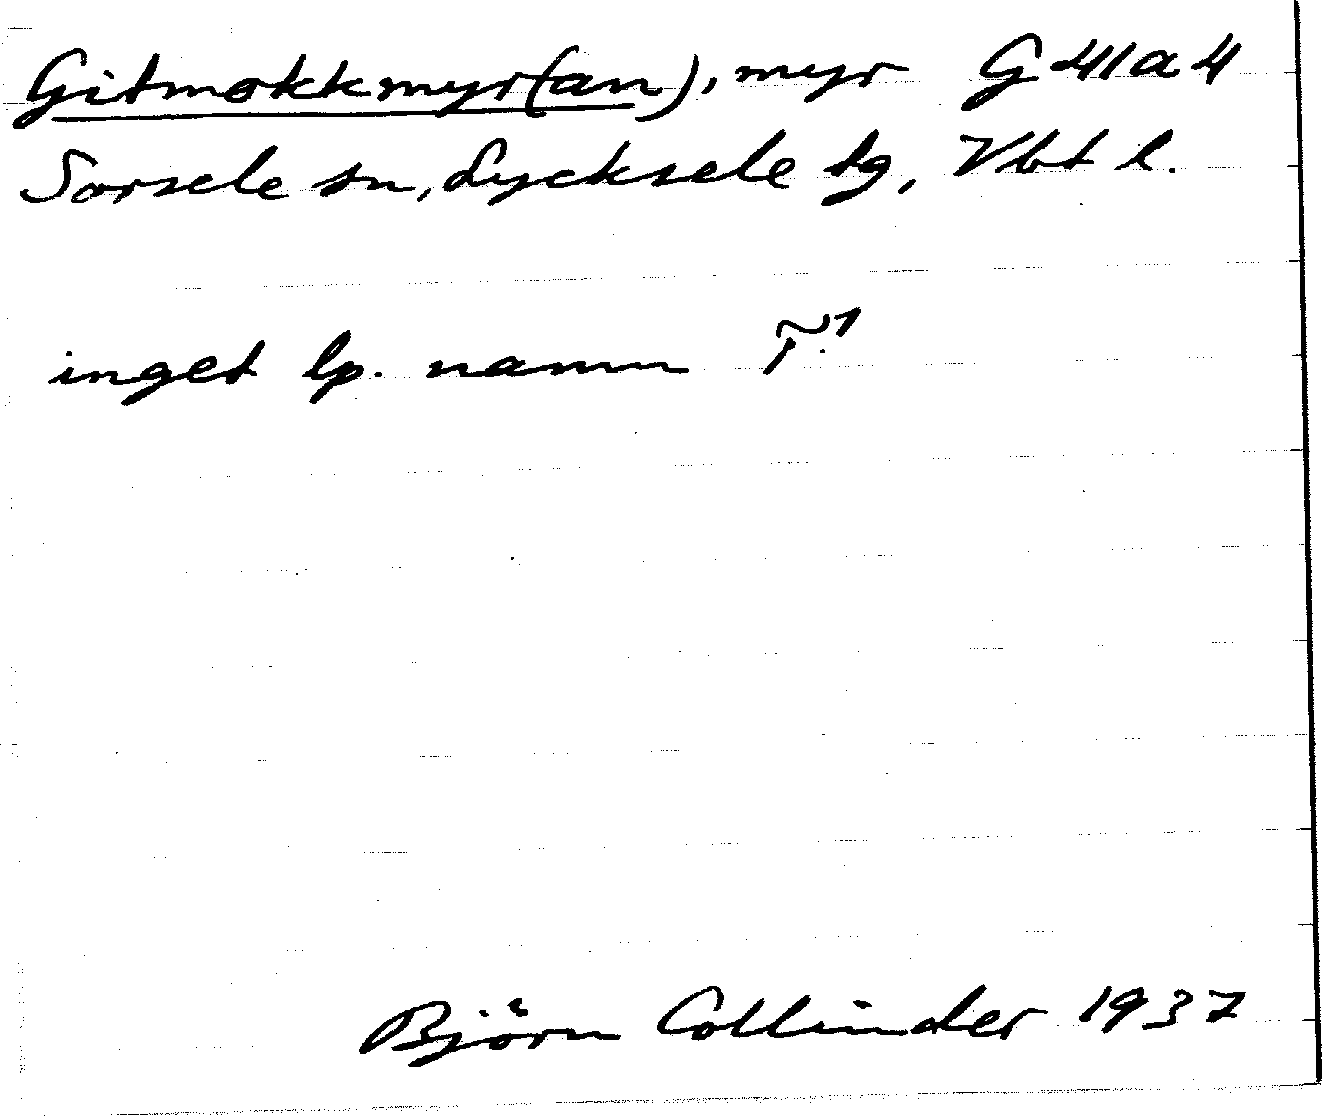 Gitmokkmyr(an), myr G 41 a 4
Sorsele sn, Lycksele tg, Vbt l.
inget lp. namn T.1
Björn Collinder 1937